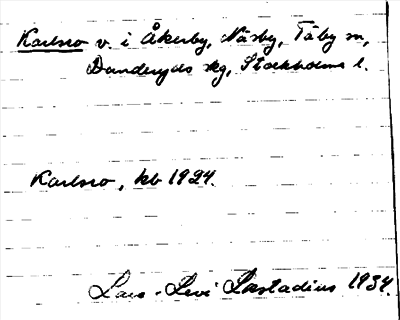 Karlsro v. i Åkerby, Näsby, Täby sn,
Danderyds skg, Stockholms l.
Karlsro, kb 1924.
Lars-Levi Læstadius 1934.